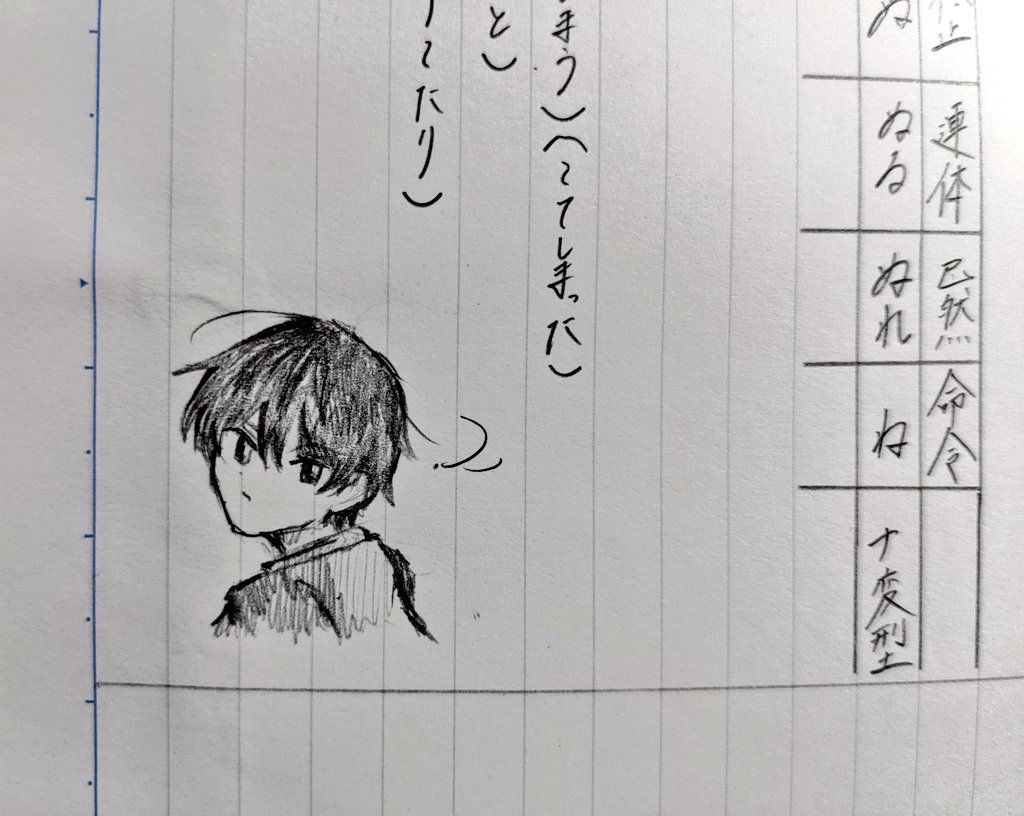 連体
已然
命令
ぬ
ぬる
ぬれ
ね
ナ変型
まう)(〜てしまった)
と)
〜たり)